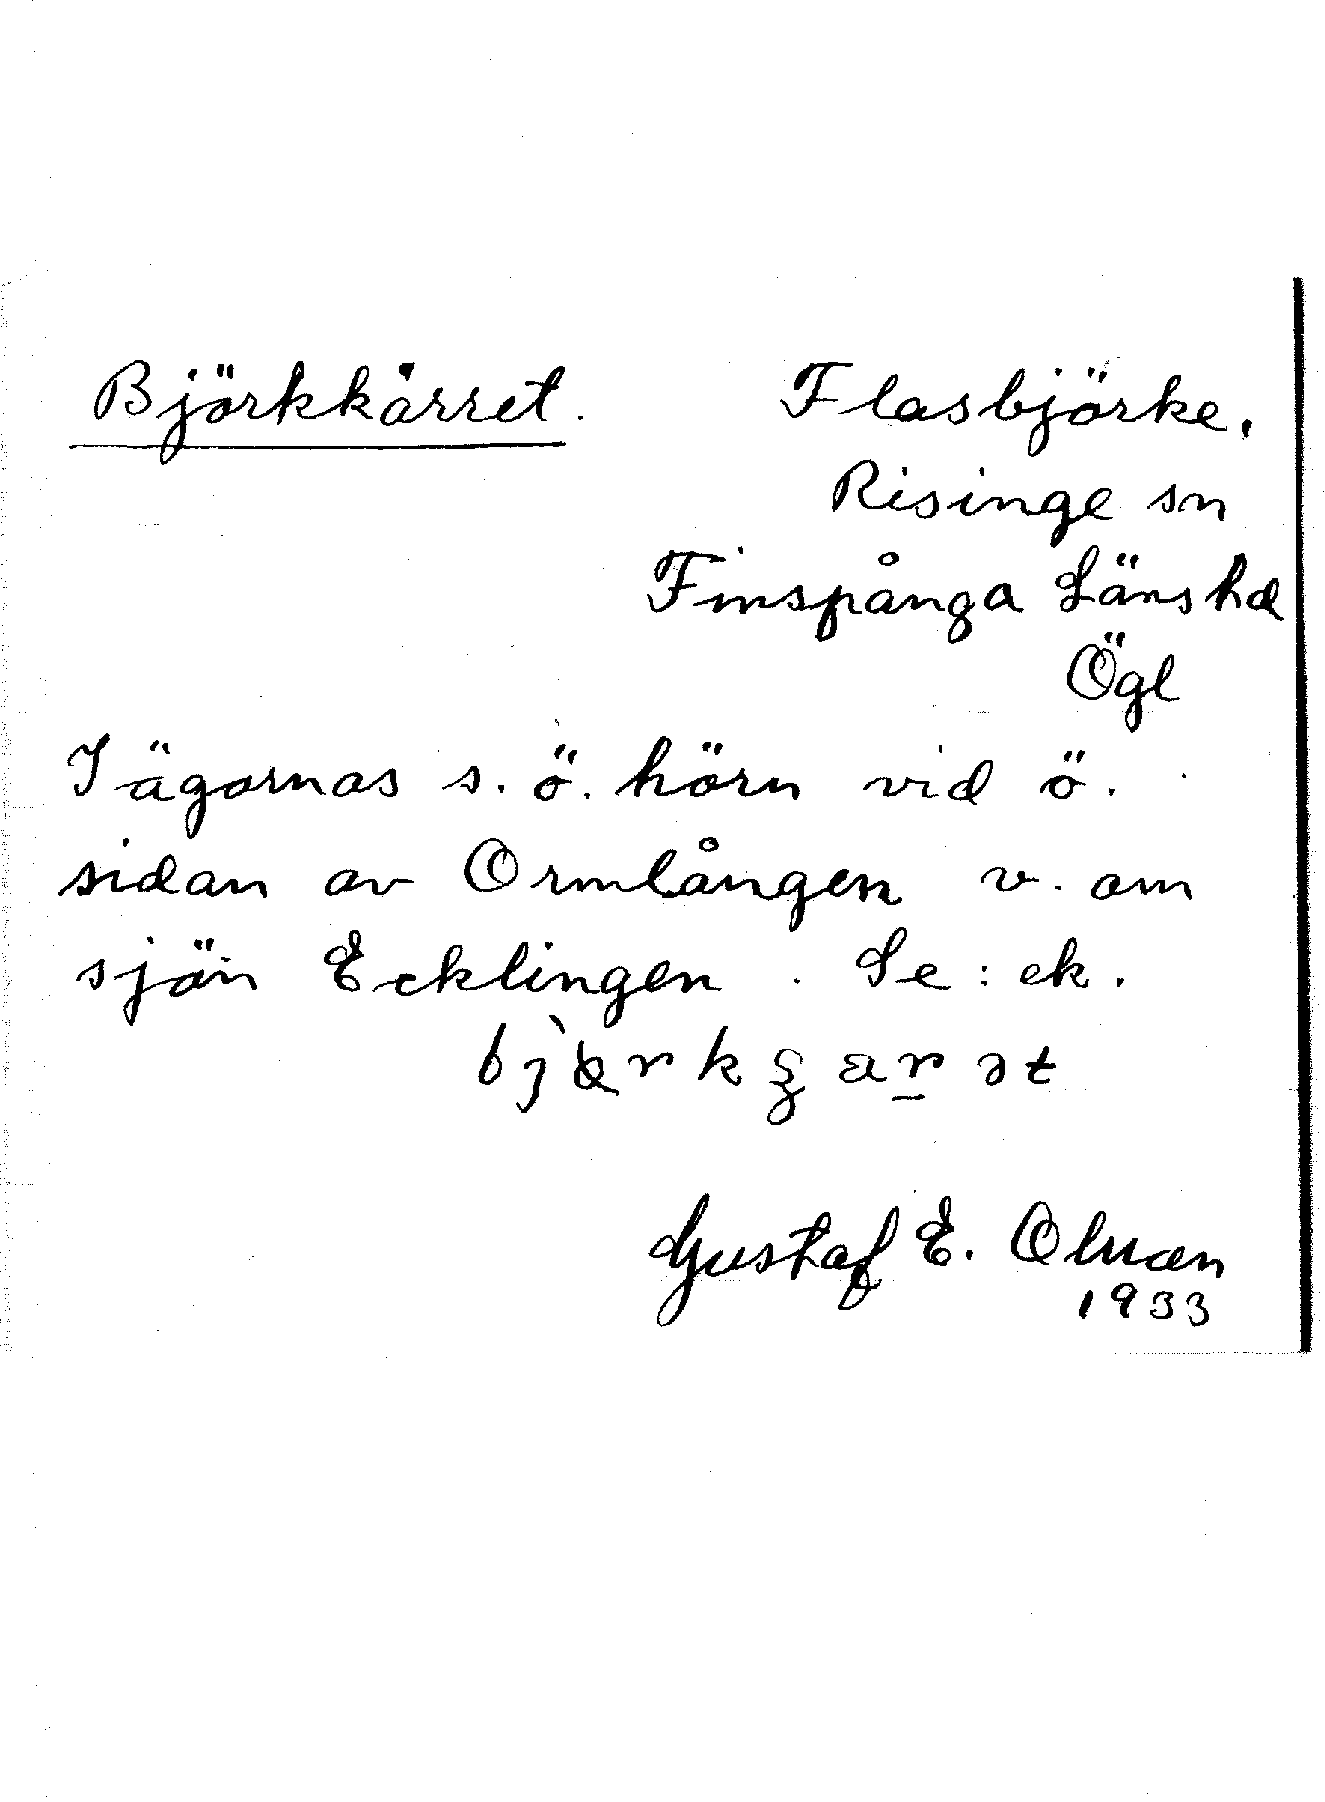 Björkkärret.
Flasbjörke.
Risinge sn
Finspånga Länshd
Ögl
I ägornas s. ö. hörn vid ö.
sidan av Ormlången v. om
sjön Ecklingen. Se: ek.
Gustaf E.
1933